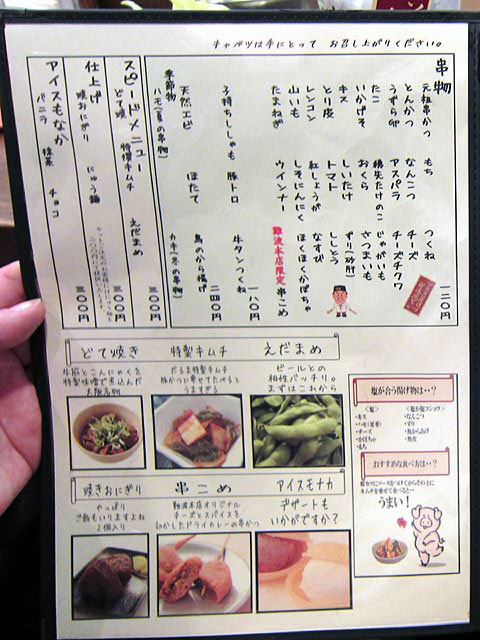 キャベツは手にとって お召し上がりください。
串物
元祖串かつ もち つくね 一二〇円
とんかつ なんこつ チーズ
うずら卵 アスパラ チーズチクワ
たこ 穂先たけのこ じゃがいも
いかげそ おくら さつまいも
キス しいたけ ずり(砂肝)
とり皮 トマト ししとう
レンコン 紅しょうが なすび
山いも しそにんにく ほくほくかぼちゃ
たまねぎ ウインナー 難波本店限定 串こめ
子持ちししゃも 豚トロ 牛タンつくね 一八〇円
天然エビ ほたて 鳥のから揚げ 二四〇円
季節物
ハモ(夏の串物) カキ(冬の串物)
スピードメニュー
どて焼 特撰キムチ えだまめ 三〇〇円
仕上げ
焼おにぎり にゅう麺 三〇〇円
アイスもなか
バニラ 抹茶 チョコ 三〇〇円
どて焼き 特製キムチ えだまめ
牛筋とこんにゃくを
特製味噌で煮込んだ
大阪名物
だるま特製キムチ
豚かつに乗せてたべると
うますぎる
ビールとの
相性バッチリ。
まずはこれから
焼きおにぎり 串こめ アイスモナカ
やっぱり
ご飯もいりますよね
2個入り
難波本店オリジナル
チーズとスパイスを
効かしたドライカレーの串かつ
デザートも
いかがですか?
塩が合う揚げ物は・・?
<塩>
・キス
・ハモ(夏季)
・チーズ
・かぼちゃ
・もち
<塩か塩コショウ>
・なんこつ
・ずり
・鳥から揚げ
・鳥皮
おすすめな食べ方は・・?
豚カツにソースをつけてからその上に
キムチを乗せて食べると・・
うまい!